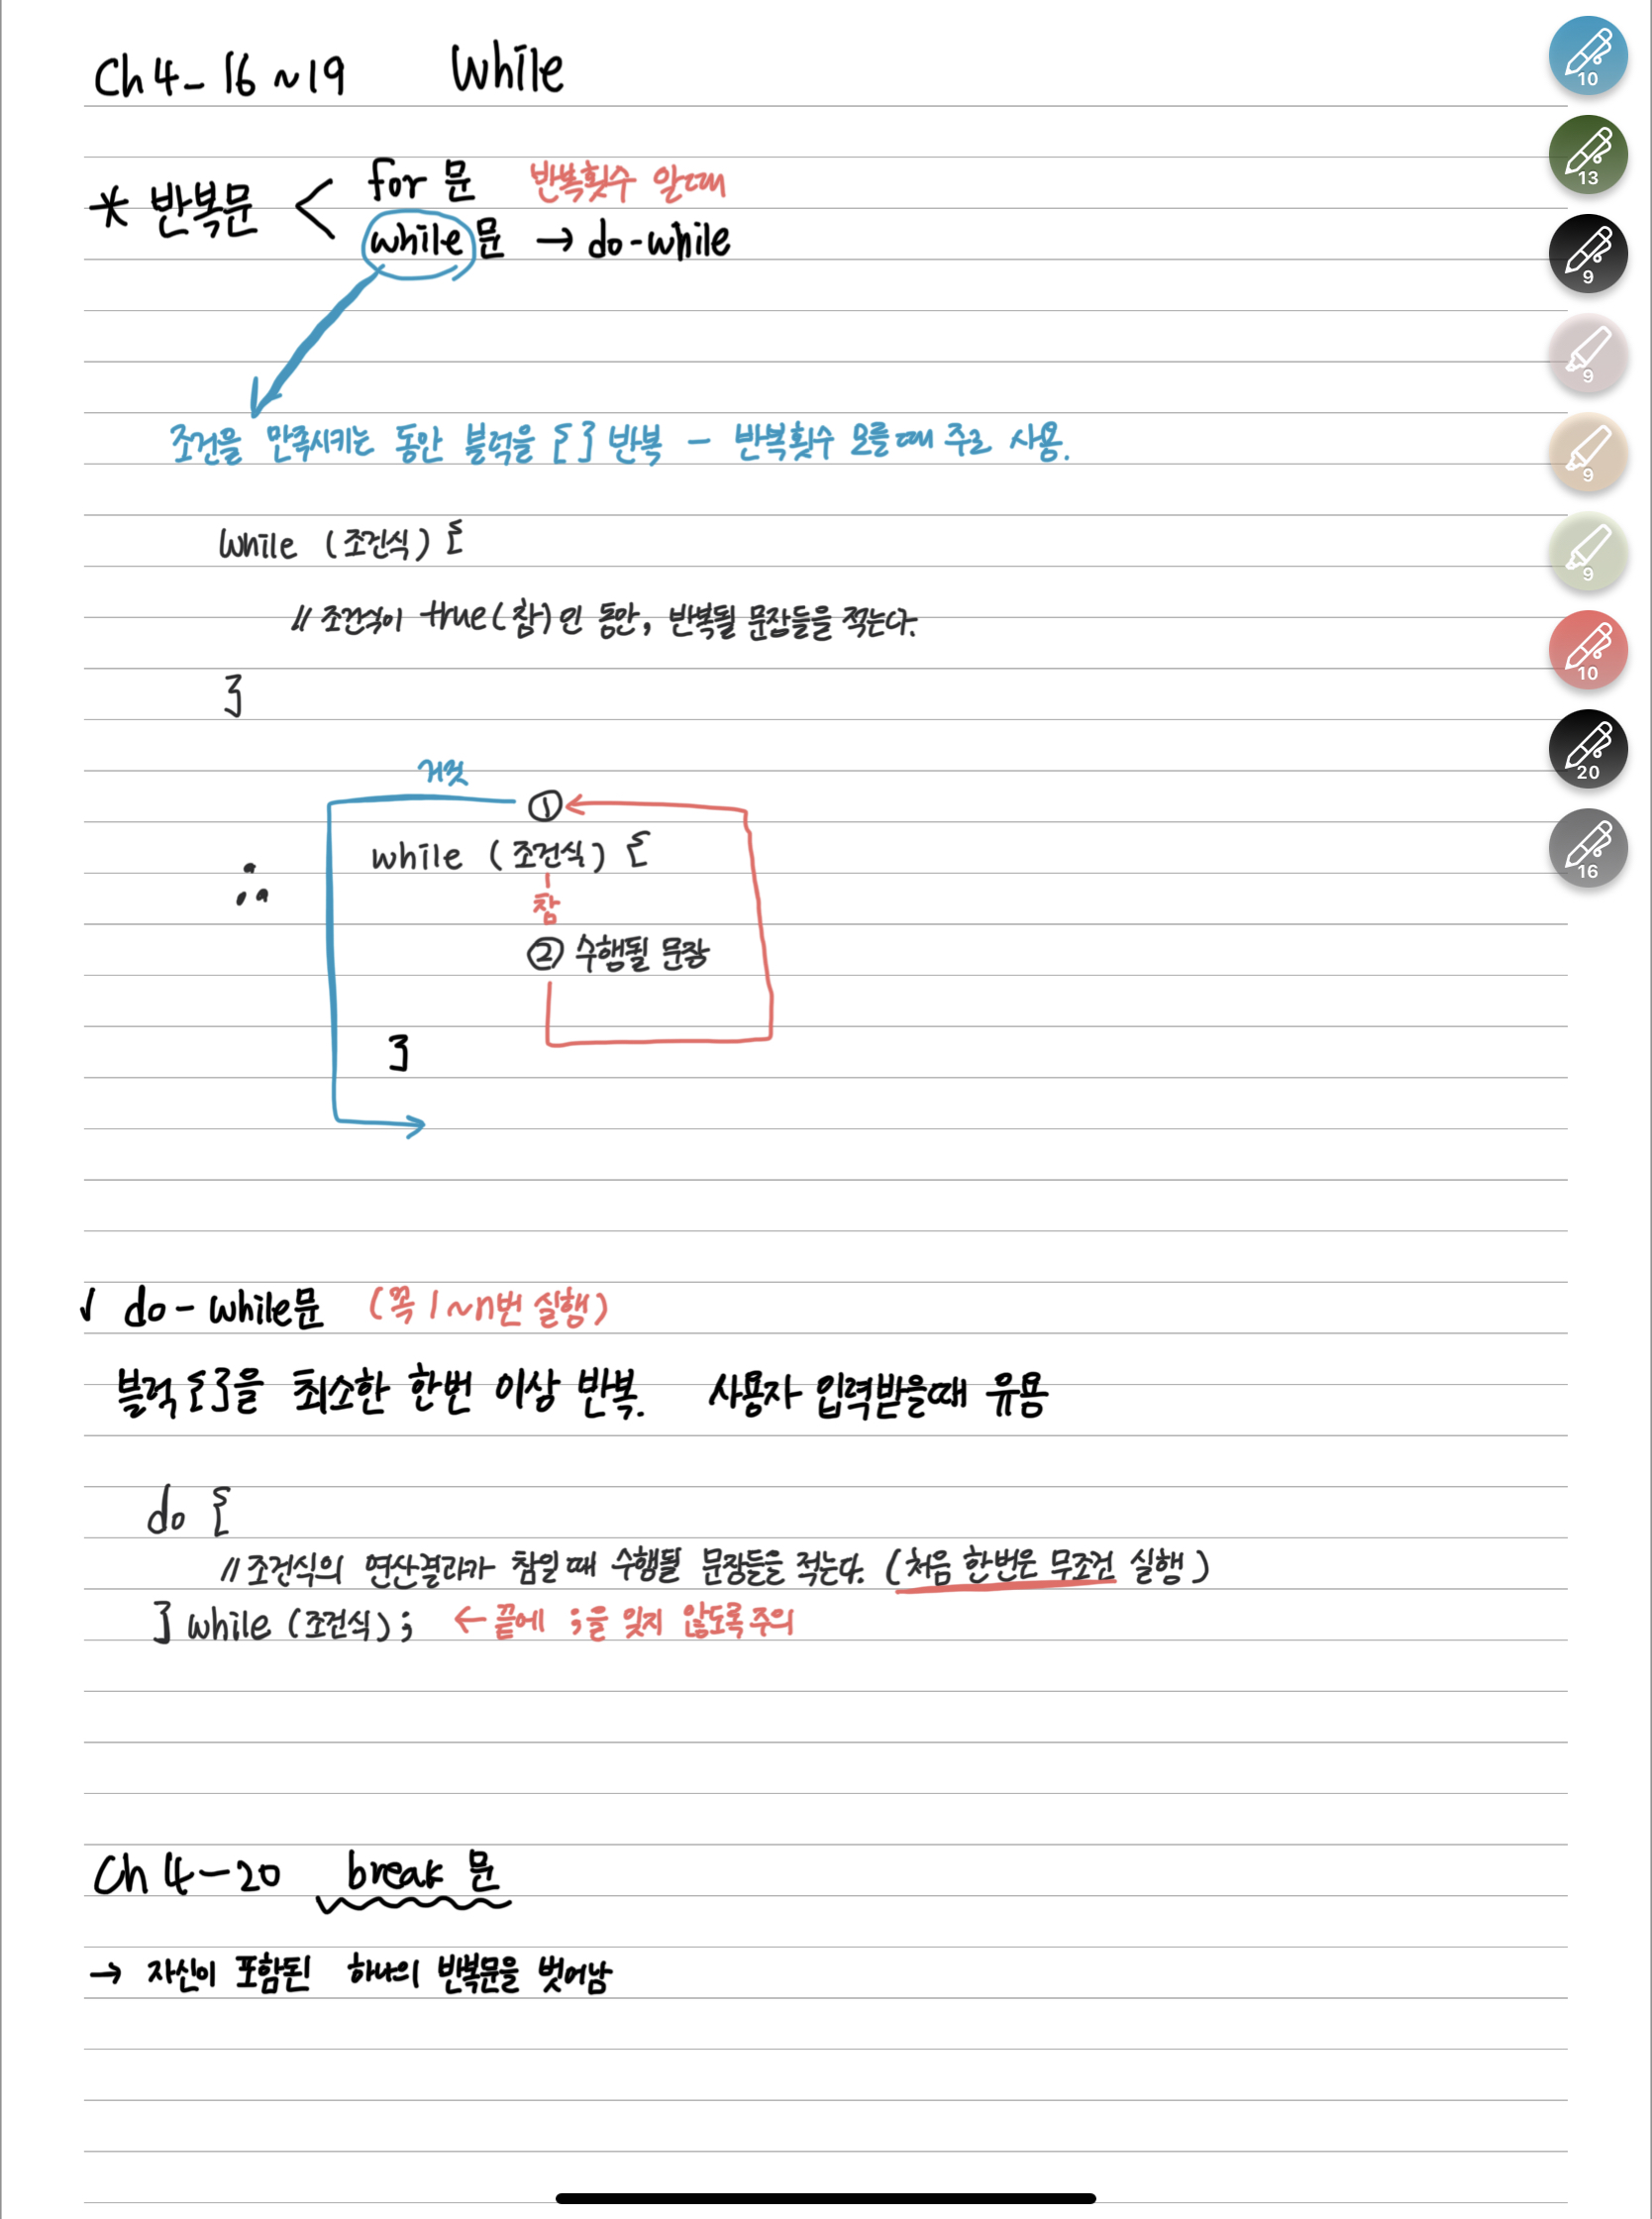 Ch 4-16~19 While
* 반복문 < for 문 반복횟수 알때
while문 → do-while
조건을 만족시키는 동안 블럭을 { } 반복 - 반복횟수 모를때 주로 사용.
while (조건식) {
// 조건식이 true(참)인 동안, 반복될 문장들을 적는다.
}
거짓
①
∴ while (조건식) {
참
② 수행될 문장
}
✓ do-while문 (꼭 1~n번 실행)
블럭{ }을 최소한 한번 이상 반복. 사용자 입력받을때 유용
do {
// 조건식의 연산결과가 참일 때 수행될 문장들을 적는다. (처음 한번은 무조건 실행)
} while (조건식); ← 끝에 ;을 잊지 않도록 주의
Ch 4-20 break 문
→ 자신이 포함된 하나의 반복문을 벗어남
10
13
9
9
9
9
10
20
16